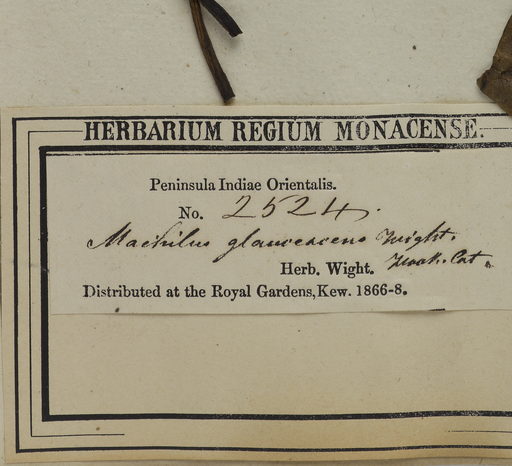 HERBARIUM REGIUM MONACENSE.
Peninsula Indiae Orientalis.
No. 2524.
Machilus glaucescens Wight.
Herb. Wight. Cat.
Distributed at the Royal Gardens, Kew. 1866-8.